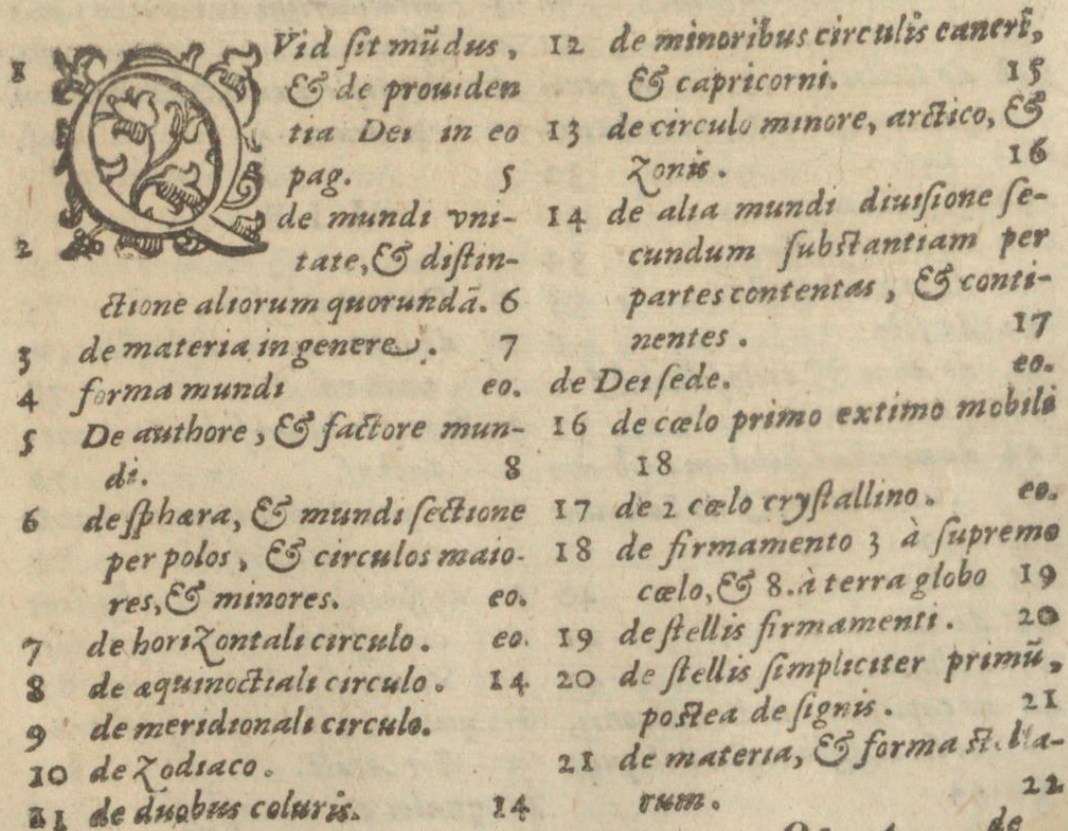 1 QVid sit mūdus,
& de prouiden
tia Dei in eo
pag. 5
2 de mundi vni-
tate, & distin-
ctione aliorum quorundā. 6
3 de materia in genere. 7
4 forma mundi eo.
5 De authore, & factore mun-
di. 8
6 de sphæra, & mundi sectione
per polos, & circulos maio-
res, & minores. eo.
7 de horizontali circulo. eo.
8 de æquinoctiali circulo. 14
9 de meridionali circulo.
10 de Zodiaco.
11 de duobus coluris. 14
12 de minoribus circulis cancri,
& capricorni. 15
13 de circulo minore, arctico, &
Zonis. 16
14 de alia mundi diuisione se-
cundum substantiam per
partes contentas, & conti-
nentes. 17
de Dei sede. eo.
16 de cœlo primo extimo mobili
18
17 de 2 cœlo crystallino. eo.
18 de firmamento 3 à supremo
cœlo, & 8. à terra globo 19
19 de stellis firmamenti. 20
20 de stellis simpliciter primū,
postea de signis. 21
21 de materia, & forma stella-
rum. 22
de